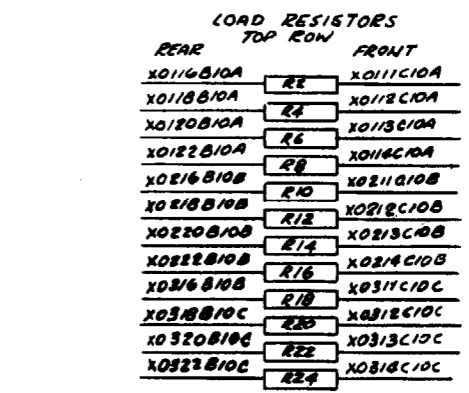 LOAD RESISTORS
TOP ROW
REAR FRONT
X0116B10A R2 X0111C10A
X0118B10A R4 X0112C10A
X0120B10A R6 X0113C10A
X0122B10A R8 X0114C10A
X0216B10B R10 X0211C10B
X0218B10B R12 X0212C10B
X0220B10B R14 X0213C10B
X0222B10B R16 X0214C10B
X0316B10B R18 X0311C10C
X0318B10C R20 X0312C10C
X0320B10C R22 X0313C10C
X0322B10C R24 X0314C10C